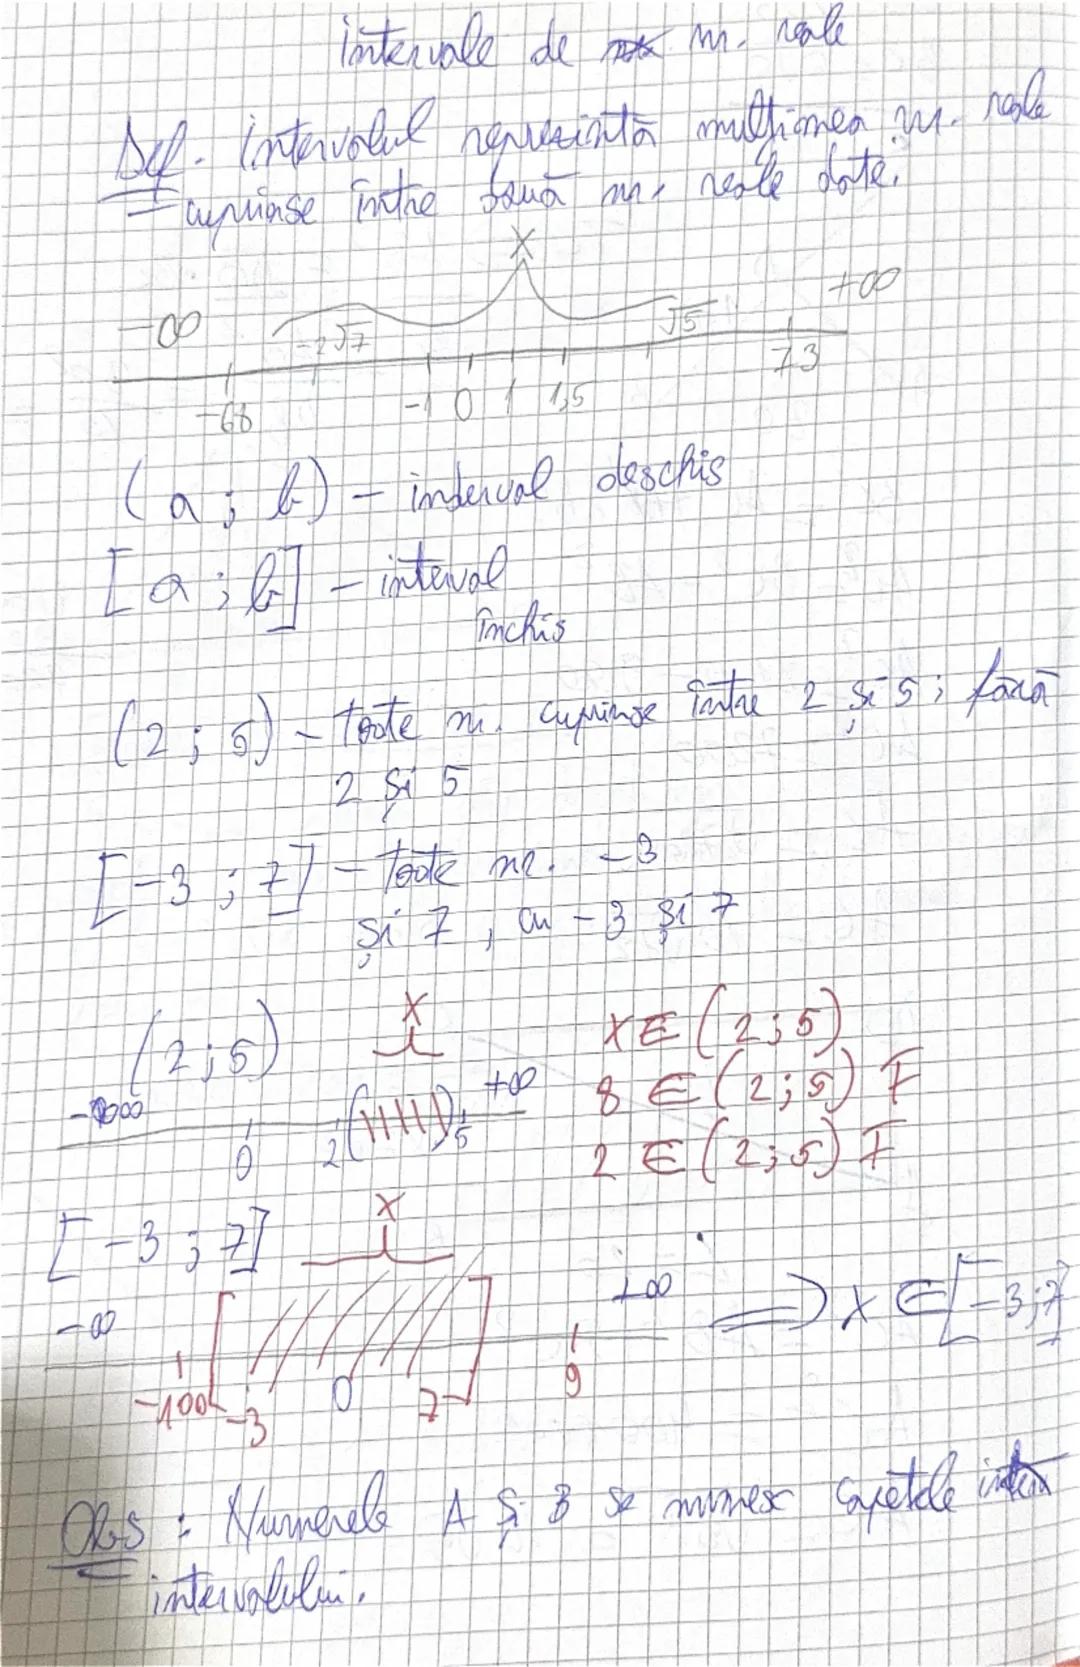 intervale de nr. reale
Def. Intervalul reprezintă mulțimea nr. reale
cuprinse între două nr. reale date.
x
-∞ +∞
-2√7 √5
-68 -1 0 1 1,5 73
(a ; b) - interval deschis
[a ; b] - interval
închis
(2 ; 5) - toate nr. cuprinse între 2 și 5; fără
2 și 5
[-3 ; 7] - toate nr. -3
și 7, cu -3 și 7
(2;5) x x ∈ (2;5)
-∞ +∞ 8 ∈ (2;5) F
0 2 ( ) 5 2 ∈ (2;5) F
[-3 ; 7] x
-∞ +∞ ⟹ x ∈ [-3;7]
-100 [ -3 0 7 ] 9
Obs : Numerele A și B se numesc capetele
intervalului.